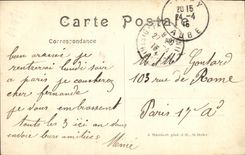 Carte Postale
Correspondance
bien arrivé je
rentrerai lundi soir
a paris je coucherai
chez fernande
je vous embrassent
toute les 3 ici on vous
envoie leur amitiées
Mimie
20 15
24-4
AUBE
M et Mme Goutard
103 rue de Rome
Paris 17e